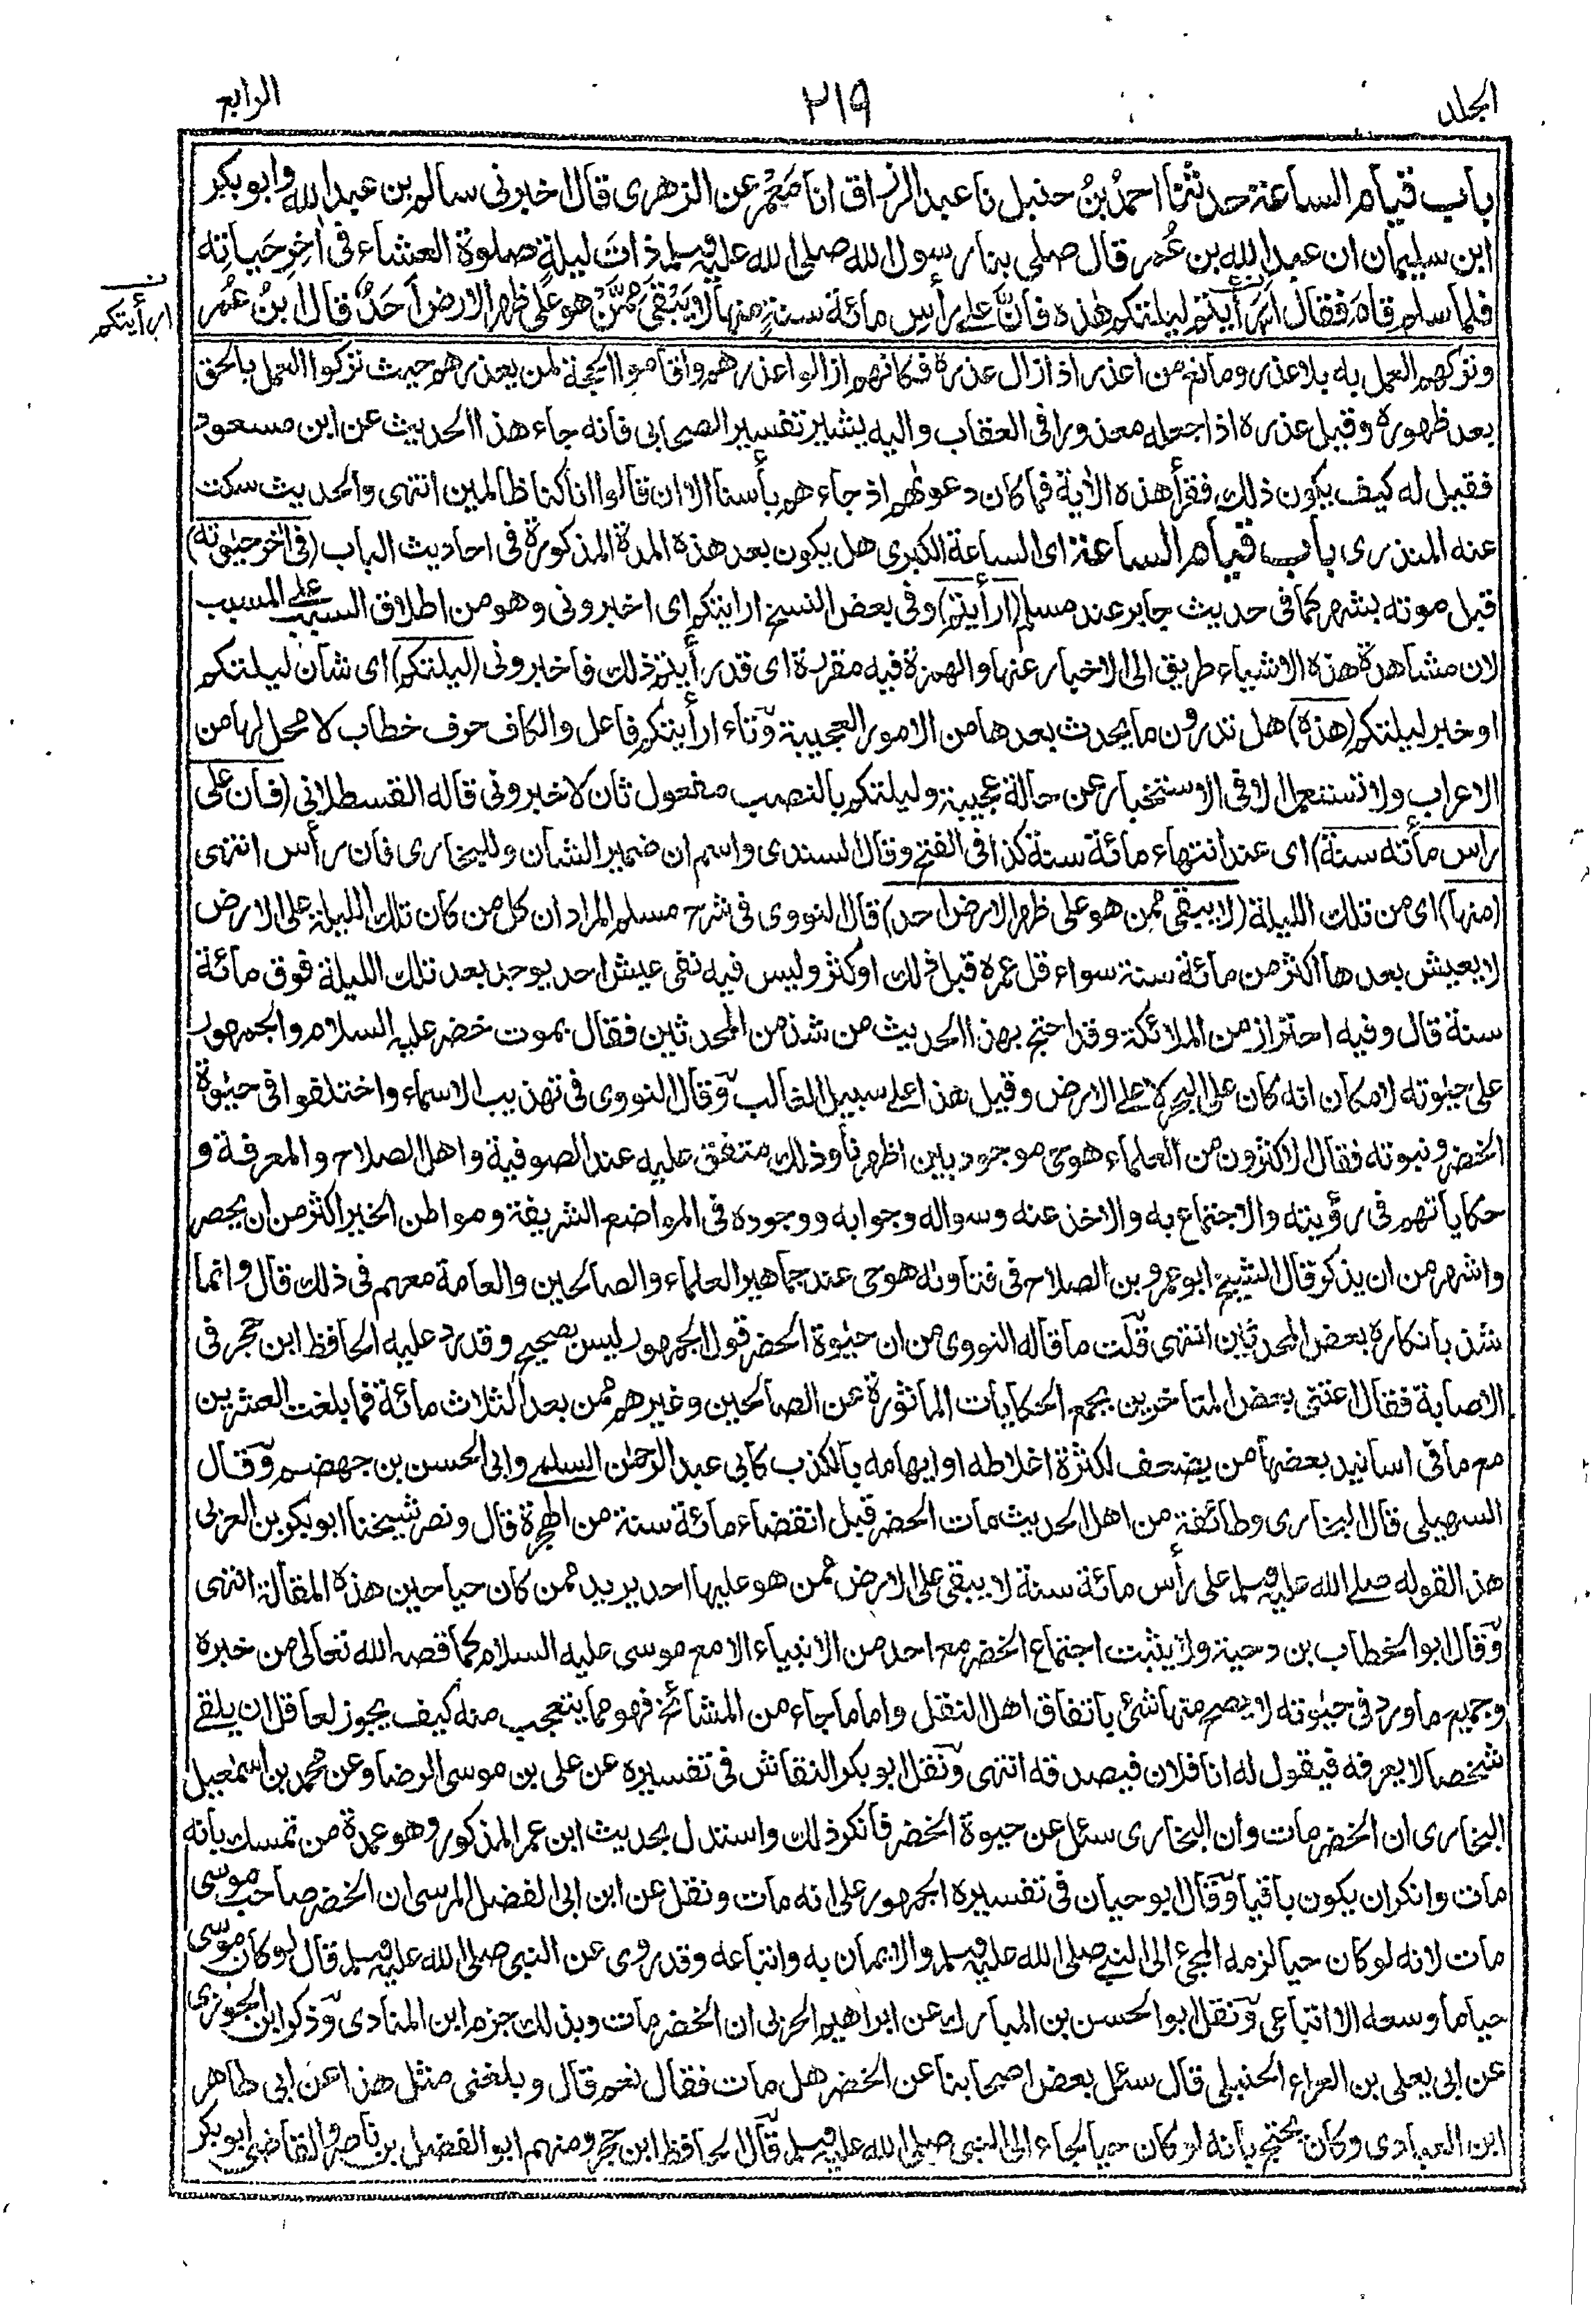 الجلد
٢١٩
الرابع
باب قيام الساعة حدثنا احمدُ بنُ حنبل نا عبد الرزاق انا مَعْمر عن الزهرى قال اخبرنى سالم بن عبد الله وابو بكر
ابن سليمان ان عبد الله بن عُمر قال صلى بنا رسول الله صلى الله عليه وسلم ذاتَ ليلةٍ صلوة العشاء فى اٰخِرِ حَيَاتِه
فلما سلم قامَ فقال اَرَأَيْتم ليلتكم هٰذه فانَّ على رأسِ مائة سنةٍ منها لا يَبْقٰى مِمَّنْ هو على ظهر الارض اَحَدٌ قال ابنُ عُمر
ارأيتكم
وتركهم العمل به بلا عذر ومانع من اعذر اذا زال عذره فكانهم ازالوا عذرهم واقاموا الحجة لمن يعذرهم حيث تركوا العمل بالحق
بعد ظهوره وقيل عذره اذا جعله معذورا فى العقاب واليه يشير تفسير الصحابى فانه جاء هذا الحديث عن ابن مسعود
فقيل له كيف يكون ذلك فقرأ هذه الاٰية فما كان دعوٰهم اذ جاءهم بأسنا الا ان قالوا انا كنا ظالمين انتهى والحديث سكت
عنه المنذرى باب قيام الساعة اى الساعة الكبرى هل يكون بعد هذه المدة المذكورة فى احاديث الباب (فى اٰخر حيٰوته)
قبل موته بشهر كما فى حديث جابر عند مسلم (ارأيتم) وفى بعض النسخ ارايتكم اى اخبرونى وهو من اطلاق السبب على المسبب
لان مشاهدة هذه الاشياء طريق الى الاخبار عنها والهمزة فيه مقررة اى قد رأيتم ذلك فاخبرونى (ليلتكم) اى شان ليلتكم
او خبر ليلتكم (هذه) هل تدرون ما يحدث بعدها من الامور العجيبة وتاء ارأيتكم فاعل والكاف حرف خطاب لا محل لها من
الاعراب ولا تستعمل الا فى الاستخبار عن حالة عجيبة وليلتكم بالنصب مفعول ثان لاخبرونى قاله القسطلانى (فان على
راس مأته سنة) اى عند انتهاء مائة سنة كذا فى الفتح وقال السندى واسم ان ضمير الشان وللبخارى فان رأس انتهى
(منها) اى من تلك الليلة (لا يبقى ممن هو على ظهر الارض احد) قال النووى فى شرح مسلم المراد ان كل من كان تلك الليلة على الارض
لا يعيش بعدها اكثر من مائة سنة سواء قل عمره قبل ذلك او كثر وليس فيه نفى عيش احد يوجد بعد تلك الليلة فوق مائة
سنة قال وفيه احتراز من الملائكة وقد احتج بهذا الحديث من شذ من المحدثين فقال بموت خضر عليه السلام والجمهور
على حيٰوته لامكان انه كان على البحر لا على الارض وقيل هذا على سبيل الغالب وقال النووى فى تهذيب الاسماء واختلفوا فى حيٰوة
الخضر ونبوته فقال الاكثرون من العلماء هو حى موجود بين اظهرنا وذلك متفق عليه عند الصوفية واهل الصلاح والمعرفة و
حكاياتهم فى رؤيته والاجتماع به والاخذ عنه وسواله وجوابه ووجوده فى المواضع الشريفة ومواطن الخير اكثر من ان يحصر
واشهر من ان يذكر قال الشيخ ابو عمرو بن الصلاح فى فتاوٰه هو حى عند جماهير العلماء والصالحين والعامة معهم فى ذلك قال وانما
شذ بانكاره بعض المحدثين انتهى قلت ما قاله النووى من ان حيٰوة الخضر قول الجمهور ليس بصحيح وقد رد عليه الحافظ ابن حجر فى
الاصابة فقال اعتنى بعض المتاخرين بجمع الحكايات الماثورة عن الصالحين وغيرهم ممن بعد الثلاث مائة فما بلغت العشرين
مع ما فى اسانيد بعضها من يضعف لكثرة اغلاطه او ايهامه بالكذب كابى عبد الرحمٰن السلمى وابى الحسن بن جهضم وقال
السهيلى قال البخارى وطائفة من اهل الحديث مات الخضر قبل انقضاء مائة سنة من الهجرة قال ونصر شيخنا ابو بكر بن العربى
هذا لقوله صلى الله عليه وسلم على رأس مائة سنة لا يبقى على الارض ممن هو عليها احد يريد ممن كان حيا حين هذه المقالة انتهى
وقال ابو الخطاب بن دحية ولا يثبت اجتماع الخضر مع احد من الانبياء الا مع موسى عليه السلام كما قصه الله تعالى من خبره
وجميع ما ورد فى حيٰوته لا يصح منها شئ باتفاق اهل النقل واما ما جاء من المشائخ فهو مما يتعجب منه كيف يجوز لعاقل ان يلقى
شخصا لا يعرفه فيقول له انا فلان فيصدقه انتهى ونقل ابو بكر النقاش فى تفسيره عن على بن موسى الرضا وعن محمد بن اسمٰعيل
البخارى ان الخضر مات وان البخارى سئل عن حيوة الخضر فانكر ذلك واستدل بحديث ابن عمر المذكور وهو عمدة من تمسك بانه
مات وانكر ان يكون باقيا وقال ابو حيان فى تفسيره الجمهور على انه مات ونقل عن ابن ابى الفضل المرسى ان الخضر صاحب موسى
مات لانه لو كان حيا لزمه المجئ الى النبى صلى الله عليه وسلم والايمان به واتباعه وقد روى عن النبى صلى الله عليه وسلم قال لو كان موسى
حيا ما وسعه الا اتباعى ونقل ابو الحسن بن المبارك عن ابراهيم الحربى ان الخضر مات وبذلك جزم ابن المنادى وذكر ابن الجوزى
عن ابى يعلى بن الفراء الحنبلى قال سئل بعض اصحابنا عن الخضر هل مات فقال نعم قال وبلغنى مثل هذا عن ابى طاهر
ابن العبادى وكان يحتج بانه لو كان حيا لجاء الى النبى صلى الله عليه وسلم قال الحافظ ابن حجر ومنهم ابو الفضل بن ناصر والقاضى ابو بكر